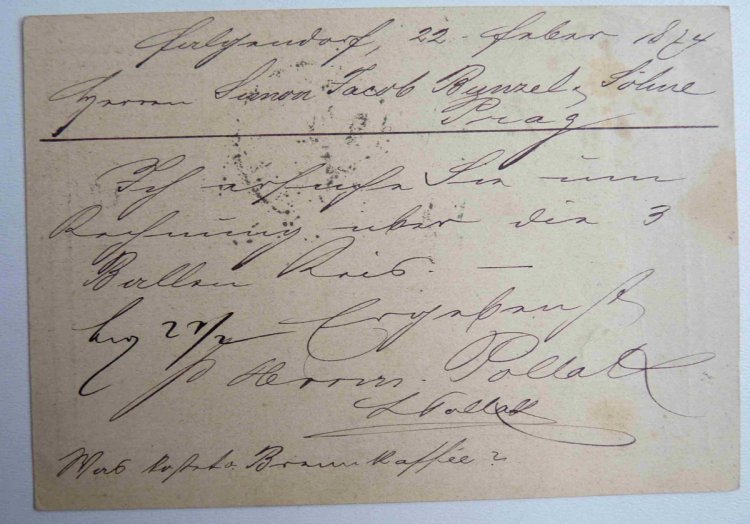 Falgendorf, 22. Feber 1874
Herren Simon Jacob Bunzel & Söhne
Prag
Ich ersuche Sie um
Rechnung über die 3
Ballen Reis. —
22/2 Ergebenst
p Herm. Pollak
L Pollak
Was kostete Braunkaffée?